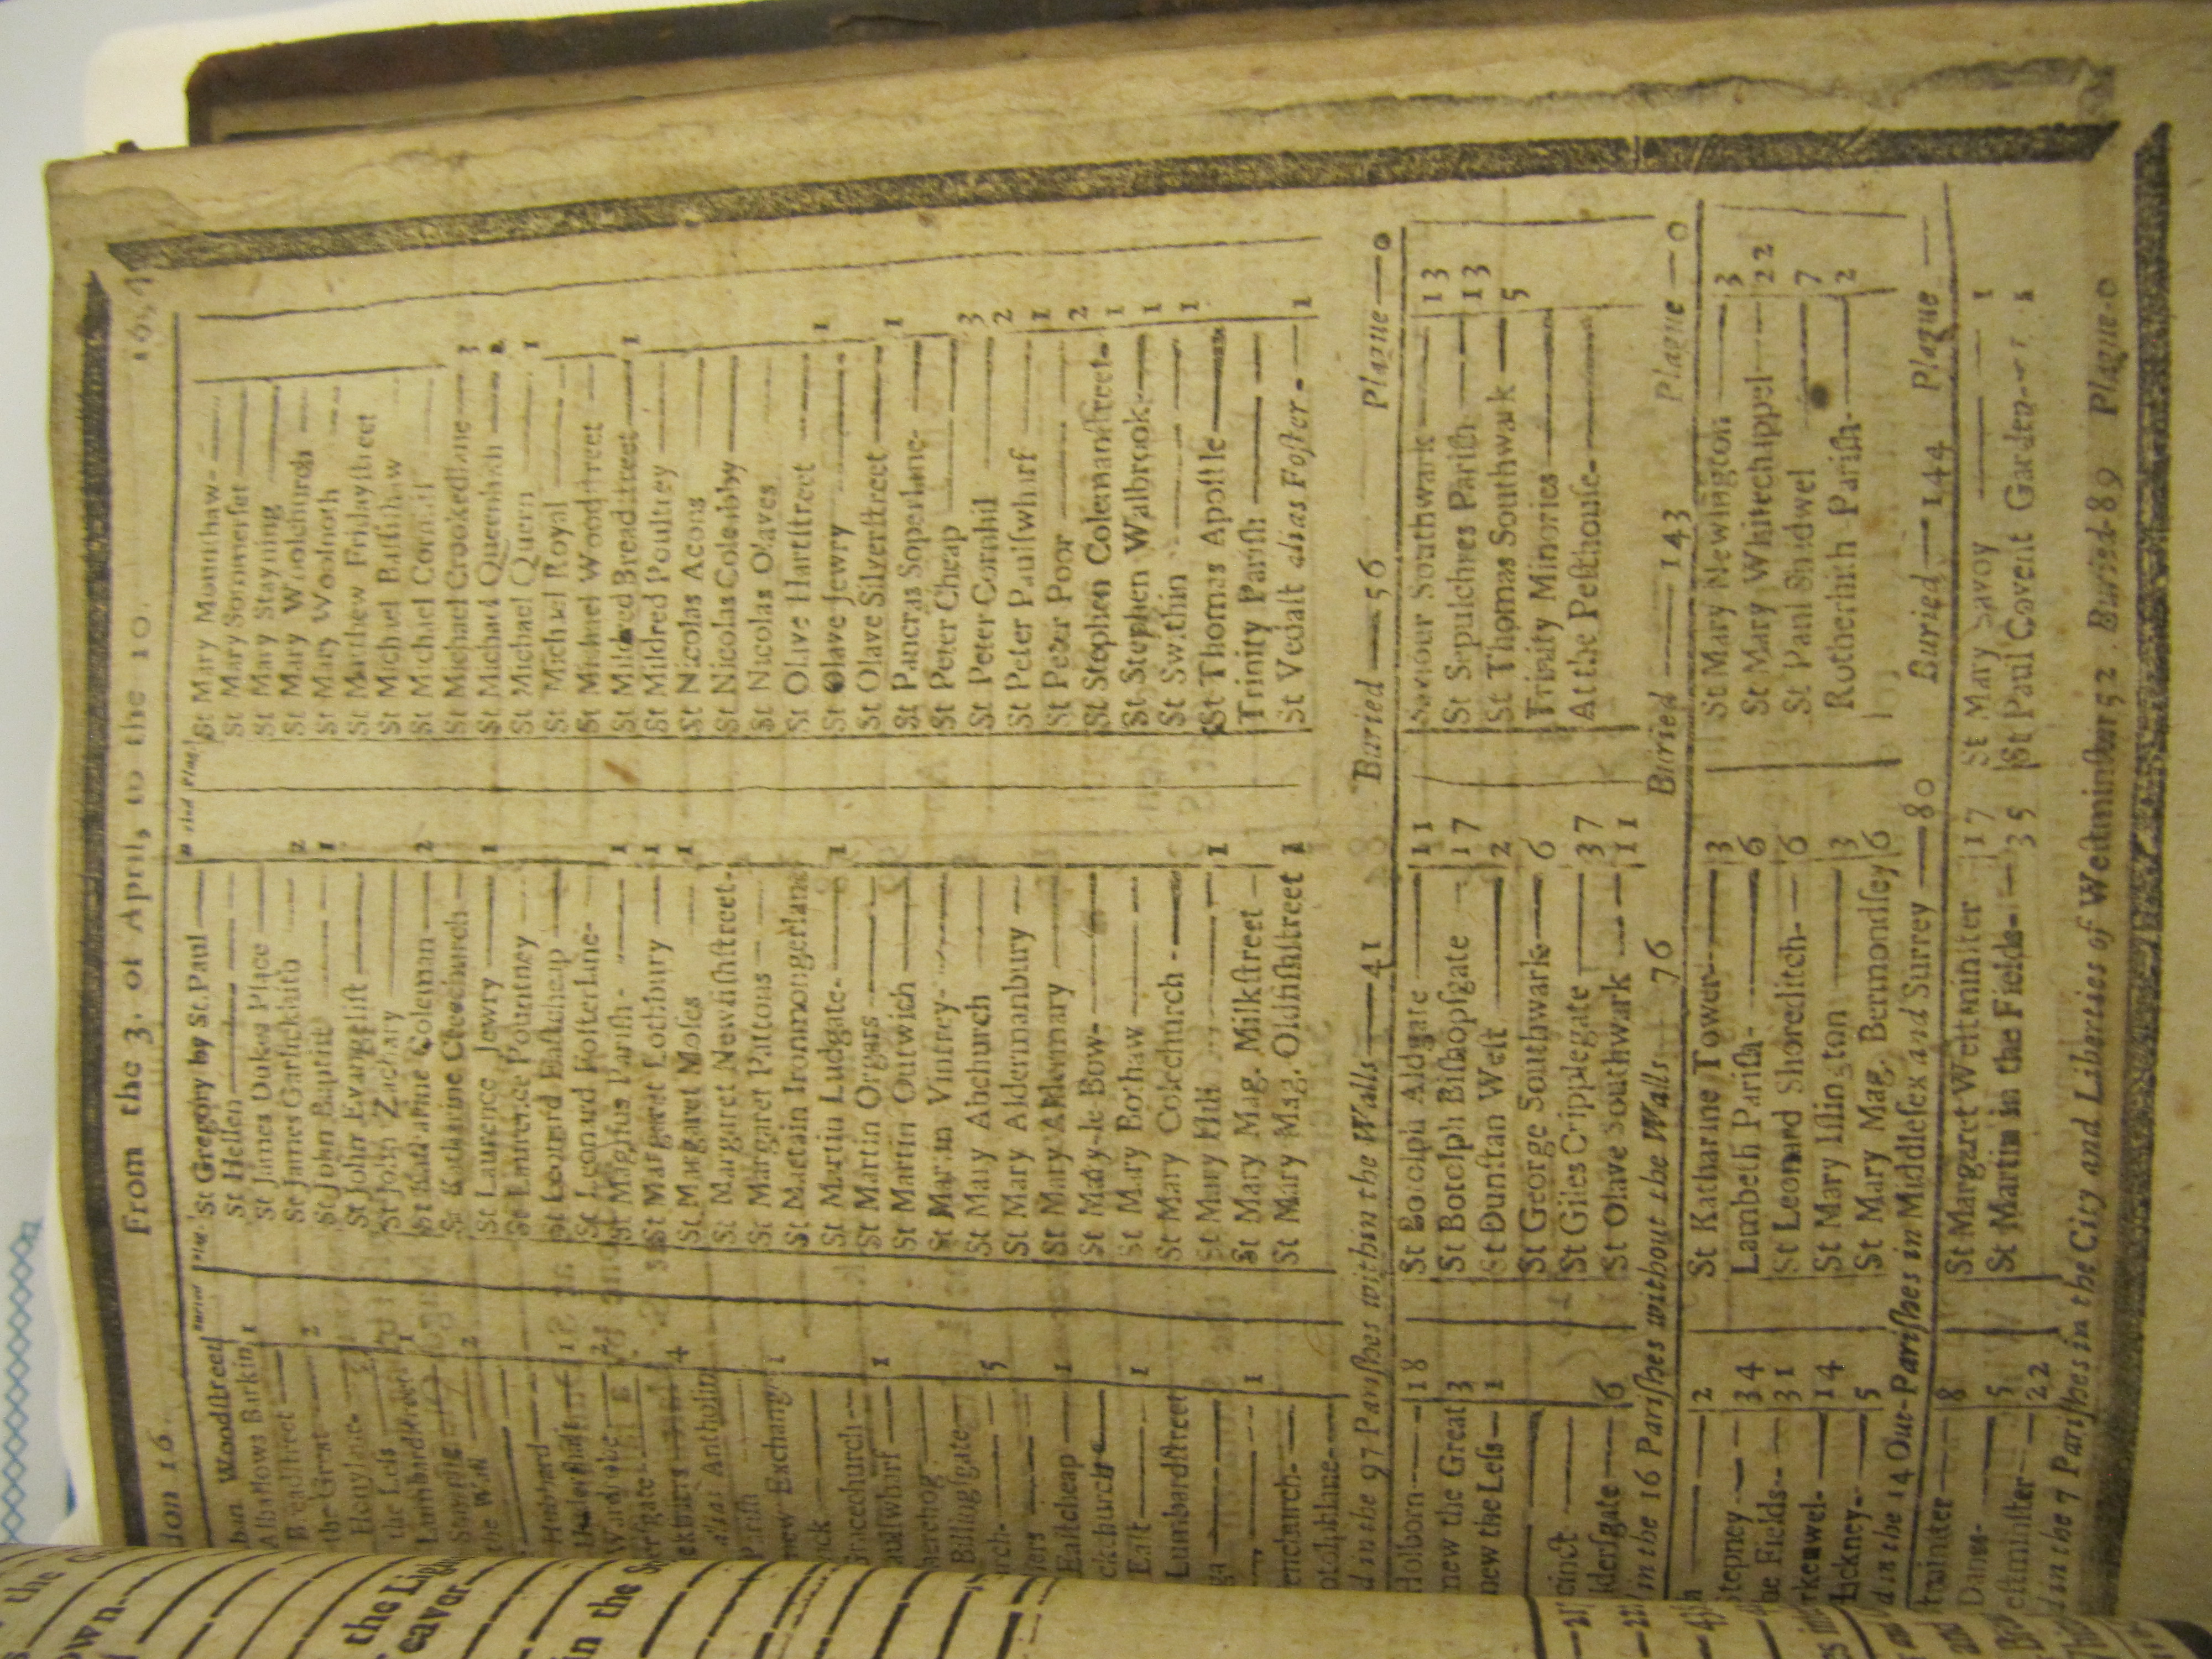 don 16.
From the 3. of April, to the 10.
Woodstreet
Alhallows Barkin 1
Breadstreet
the Great 2
Honylane
the Less 1
Lumbardstreet
2
1
2
4
alias Antholin
Parish
new Exchange 1
Gracechurch
Paulswharf 1
Billingsgate
5
Eastcheap 1
East 1
Lumbardstreet
1
St Gregory by St. Paul
St Hellen
St James Dukes Place
St James Garlickhith 2
St John Baptist 1
St John Evangelist
St John Zachary
St Katharine Coleman 2
St Katharine Creechurch
St Laurence Jewry 1
St Laurence Pountney
St Leonard Eastcheap
St Leonard Fosterlane
St Magnus Parish 1
St Margaret Lothbury 1
St Margaret Moses 1
St Margaret Newfishstreet
St Margaret Pattons
St Martin Ironmongerlane
St Martin Ludgate 1
St Martin Orgars
St Martin Outwich
St Martin Vintrey
St Mary Abchurch
St Mary Aldermanbury
St Mary Aldermary
St Mary le Bow
St Mary Bothaw
St Mary Colechurch
St Mary Hill 1
St Mary Mag. Milkstreet
St Mary Mag. Oldfishstreet 1
St Mary Mounthaw
St Mary Sommerset
St Mary Stayning
St Mary Woolchurch
St Mary Woolnoth
St Matthew Fridaystreet
St Michael Bassishaw
St Michael Cornhil
St Michael Crookedlane 3
St Michael Queenhith
St Michael Quern 1
St Michael Royal
St Michael Woodstreet
St Mildred Breadstreet 1
St Mildred Poultrey
St Nicolas Acons
St Nicolas Coleabby
St Nicolas Olaves
St Olave Hartstreet 1
St Olave Jewry
St Olave Silverstreet 1
St Pancras Soperlane
St Peter Cheap 3
St Peter Cornhil 2
St Peter Paulswharf 1
St Peter Poor 2
St Stephen Colemanstreet 1
St Stephen Walbrook 1
St Swithin 1
St Thomas Apostle
Trinity Parish
St Vedast alias Foster 1
d in the 97 Parishes within the Walls — 41 Buried — 56 Plague — 0
Holborn 18
new the Great 3
new the Less 1
cinct
ldersgate 6
St Botolph Aldgate 11
St Botolph Bishopsgate 17
St Dunstan West 2
St George Southwark 6
St Giles Cripplegate 37
St Olave Southwark 11
Saviour Southwark 13
St Sepulchres Parish 13
St Thomas Southwark 5
Trinity Minories
At the Pesthouse
in the 16 Parishes without the Walls 76 Buried — 143 Plague — 0
2
Stepney 34
he Fields 31
rkenwel 14
Hackney 5
St Katharine Tower 3
Lambeth Parish 6
St Leonard Shoreditch 6
St Mary Islington 3
St Mary Mag. Bermondsey 6
St Mary Newington 3
St Mary Whitechappel 22
St Paul Shadwel 7
Rotherhith Parish 2
d in the 14 Out-Parishes in Middlesex and Surrey — 80 Buried — 144 Plague —
8
Danes 5
estminster 22
St Margaret Westminster 17
St Martin in the Fields 35
St Mary Savoy 1
St Paul Covent Garden
d in the 7 Parishes in the City and Liberties of Westminster 52 Buried 89 Plague 0
the
own
the Ligh
eavar
in the S